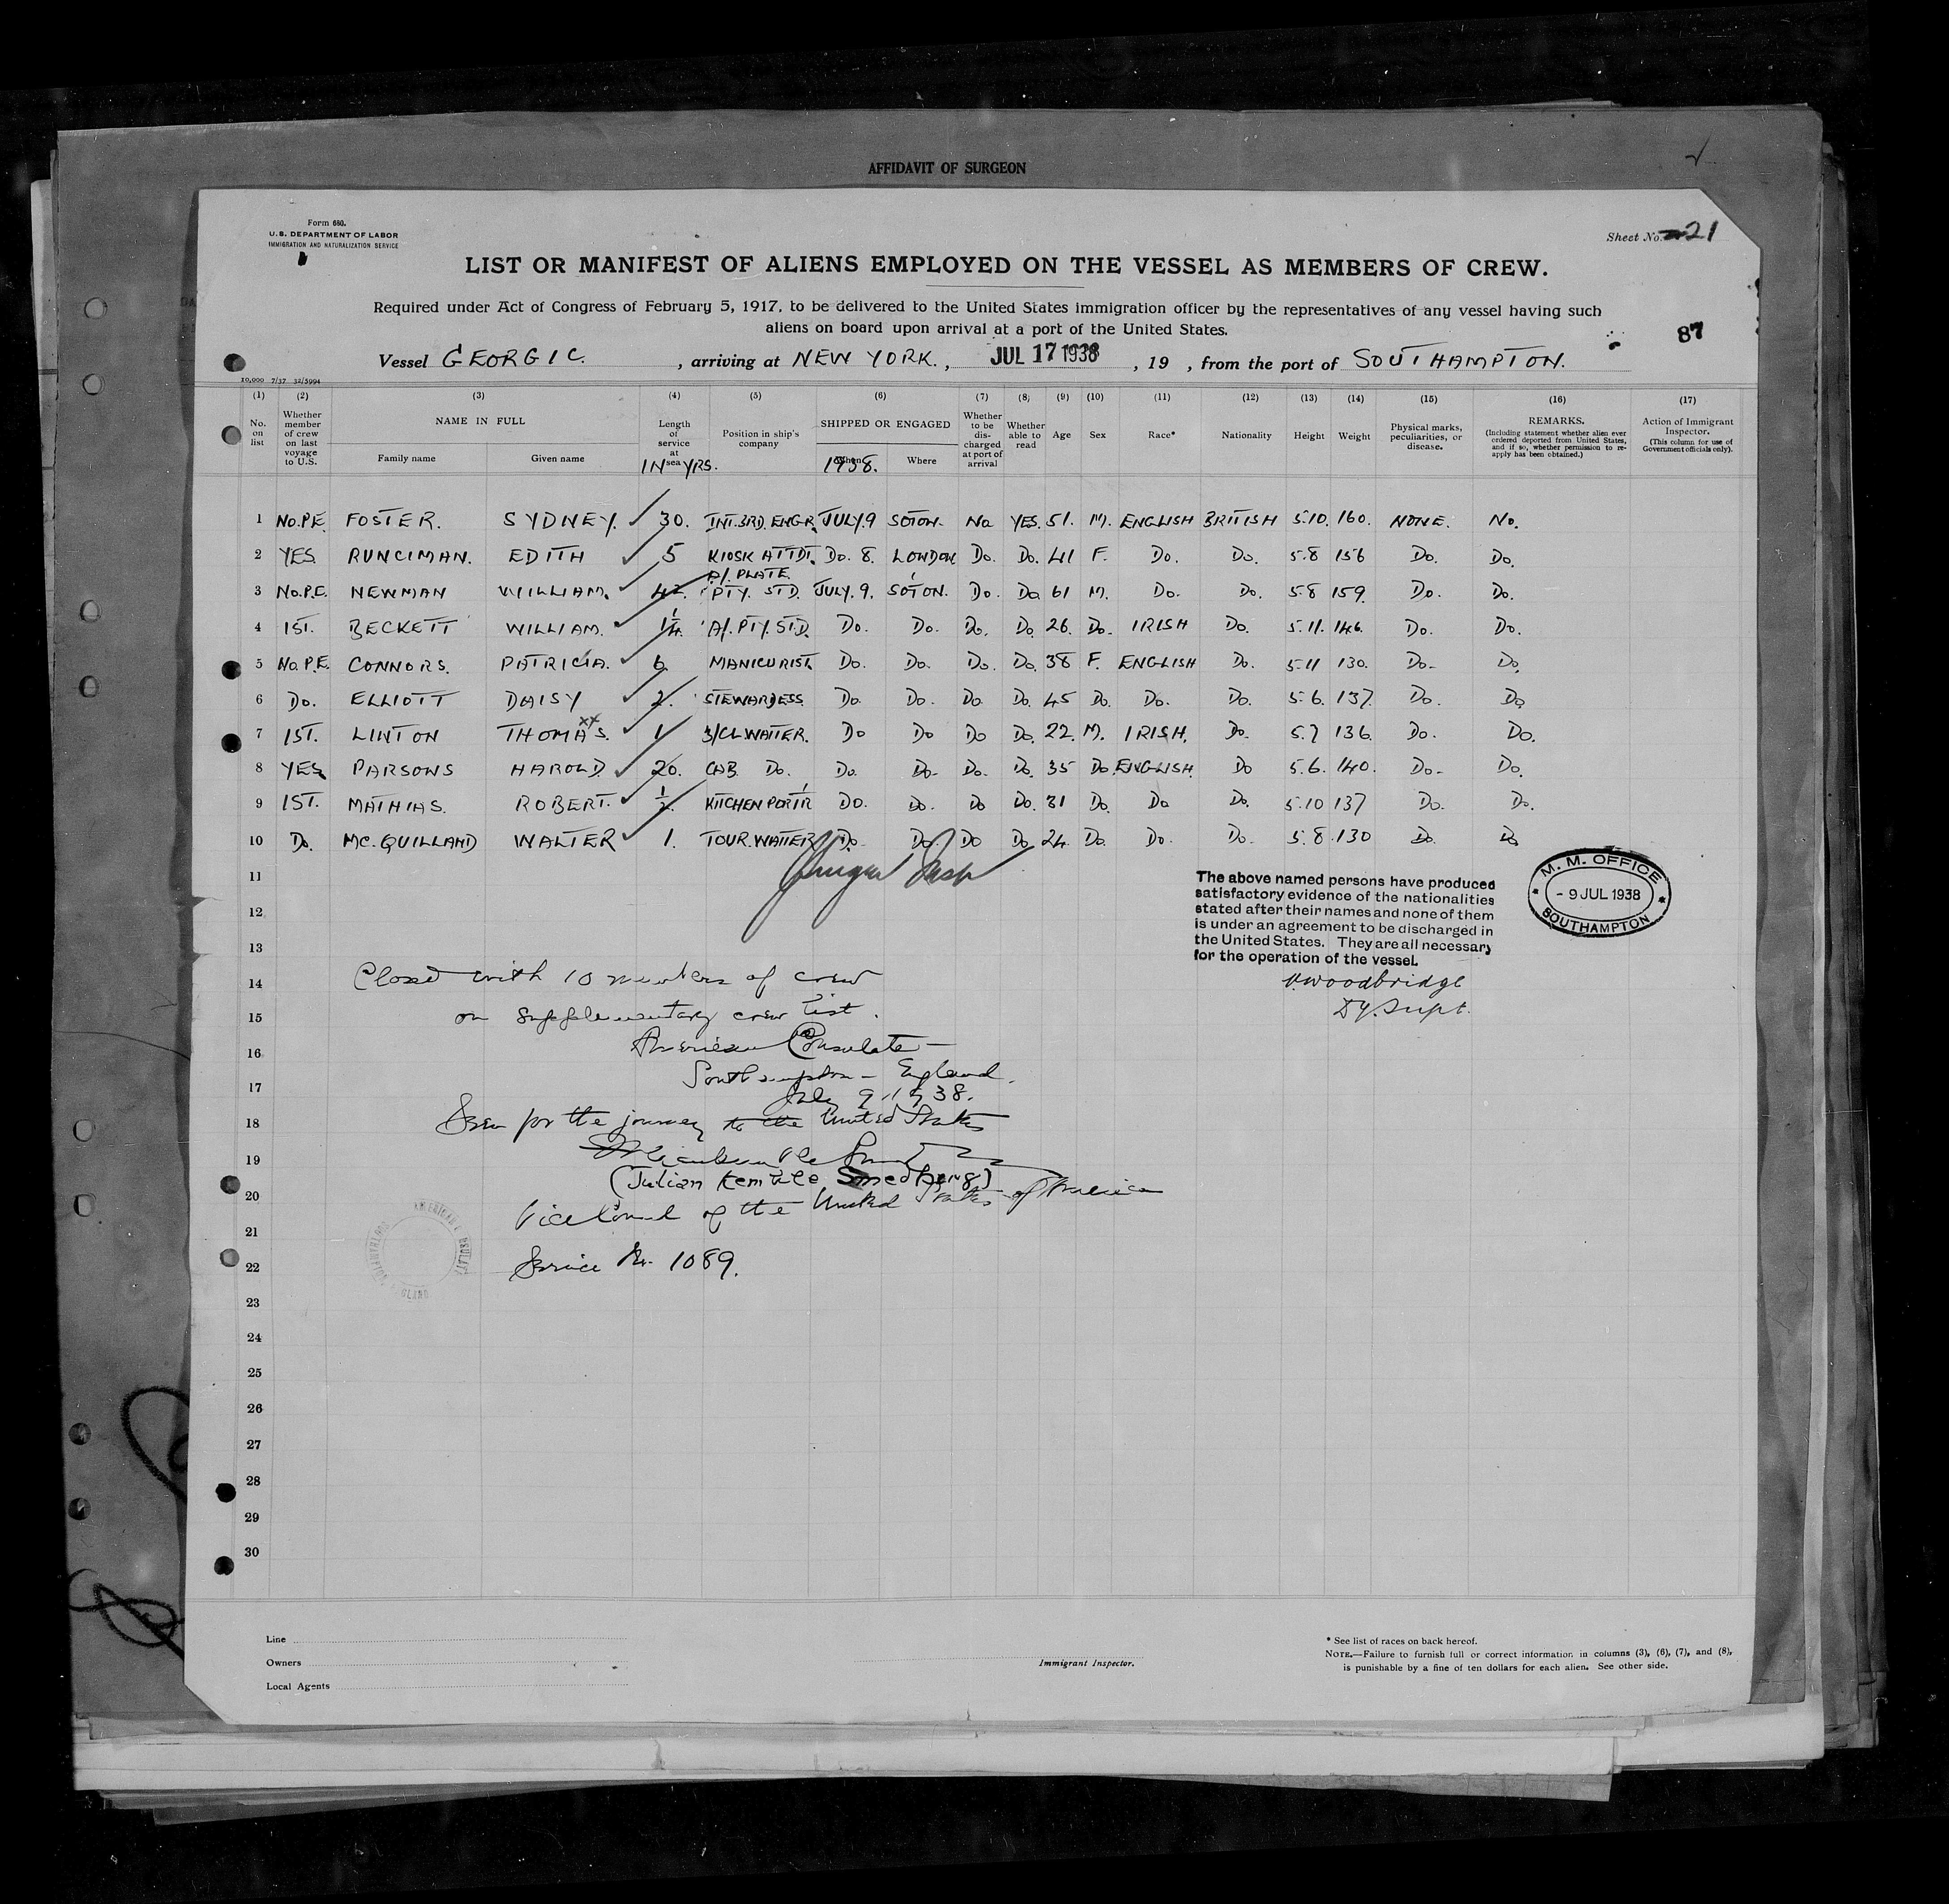 AFFIDAVIT OF SURGEON
Form 680.
U.S. DEPARTMENT OF LABOR
IMMIGRATION AND NATURALIZATION SERVICE
Sheet No. 21
LIST OR MANIFEST OF ALIENS EMPLOYED ON THE VESSEL AS MEMBERS OF CREW.
Required under Act of Congress of February 5, 1917, to be delivered to the United States immigration officer by the representatives of any vessel having such
aliens on board upon arrival at a port of the United States.
87
Vessel GEORGIC. , arriving at NEW YORK. , JUL 17 1938 , 19 , from the port of SOUTHAMPTON.
10,000 7/37 32/5994
(1) (2) (3) (4) (5) (6) (7) (8) (9) (10) (11) (12) (13) (14) (15) (16) (17)
No. on list
Whether member of crew on last voyage to U.S.
NAME IN FULL
Family name Given name
Length of service at sea
IN YRS.
Position in ship's company
SHIPPED OR ENGAGED
When Where
1938.
Whether to be discharged at port of arrival
Whether able to read
Age
Sex
Race*
Nationality
Height
Weight
Physical marks, peculiarities, or disease.
REMARKS.
(Including statement whether alien ever ordered deported from United States, and if so, whether permission to re-apply has been obtained.)
Action of Immigrant Inspector.
(This column for use of Government officials only).
1 No.P.E. FOSTER. SYDNEY. 30. INT.3RD.ENGR. JULY.9 SOTON. No YES. 51. M. ENGLISH BRITISH 5.10. 160. NONE. No.
2 YES RUNCIMAN. EDITH 5 KIOSK ATTDT. Do. 8. LONDON Do. Do. 41 F. Do. Do. 5.8 156 Do. Do.
3 No.P.E. NEWMAN WILLIAM. 42. A/. PLATE PTY. STD. JULY. 9. SO'TON. Do. Do. 61 M. Do. Do. 5.8 159. Do. Do.
4 1ST. BECKETT WILLIAM. 1/4. A/. PTY. STD. Do. Do. Do. Do. 26. Do. IRISH Do. 5.11. 146. Do. Do.
5 No.P.E. CONNORS. PATRICIA. 6. MANICURIST. Do. Do. Do. Do. 38 F. ENGLISH Do. 5.11 130. Do. Do.
6 Do. ELLIOTT DAISY 2. STEWARDESS. Do. Do. Do. Do. 45 Do. Do. Do. 5.6. 137. Do. Do.
7 1ST. LINTON THOMAS. xx 1 3/CL WAITER. Do Do Do Do. 22. M. IRISH. Do. 5.7 136. Do. Do.
8 YES PARSONS HAROLD. 20. CAB. Do. Do. Do. Do. Do. 35 Do. ENGLISH. Do 5.6. 140. Do. Do.
9 1ST. MATHIAS. ROBERT. 1/2. KITCHEN PORT'R Do. Do. Do Do. 31 Do. Do Do. 5.10 137 Do. Do.
10 Do. MC. QUILLAND WALTER 1. TOUR. WAITER Do. Do. Do Do. 24. Do. Do. Do. 5.8. 130 Do. Do
11
The above named persons have produced
satisfactory evidence of the nationalities
stated after their names and none of them
is under an agreement to be discharged in
the United States. They are all necessary
for the operation of the vessel.
M. M. OFFICE
- 9 JUL 1938
SOUTHAMPTON
Woodbridge
Dy. Supt.
12
13
14 Closed with 10 members of crew
15 on supplementary crew list.
16 American Consulate -
17 Southampton - England.
July 9. 1938.
18 Seen for the journey to the United States
19
(Julian Kemble Smedberg)
20 Vice Consul of the United States of America
21
22 Service No. 1089.
23
24
25
26
27
28
29
30
Line
Owners
Local Agents
Immigrant Inspector.
* See list of races on back hereof.
NOTE.—Failure to furnish full or correct information in columns (3), (6), (7), and (8),
is punishable by a fine of ten dollars for each alien. See other side.